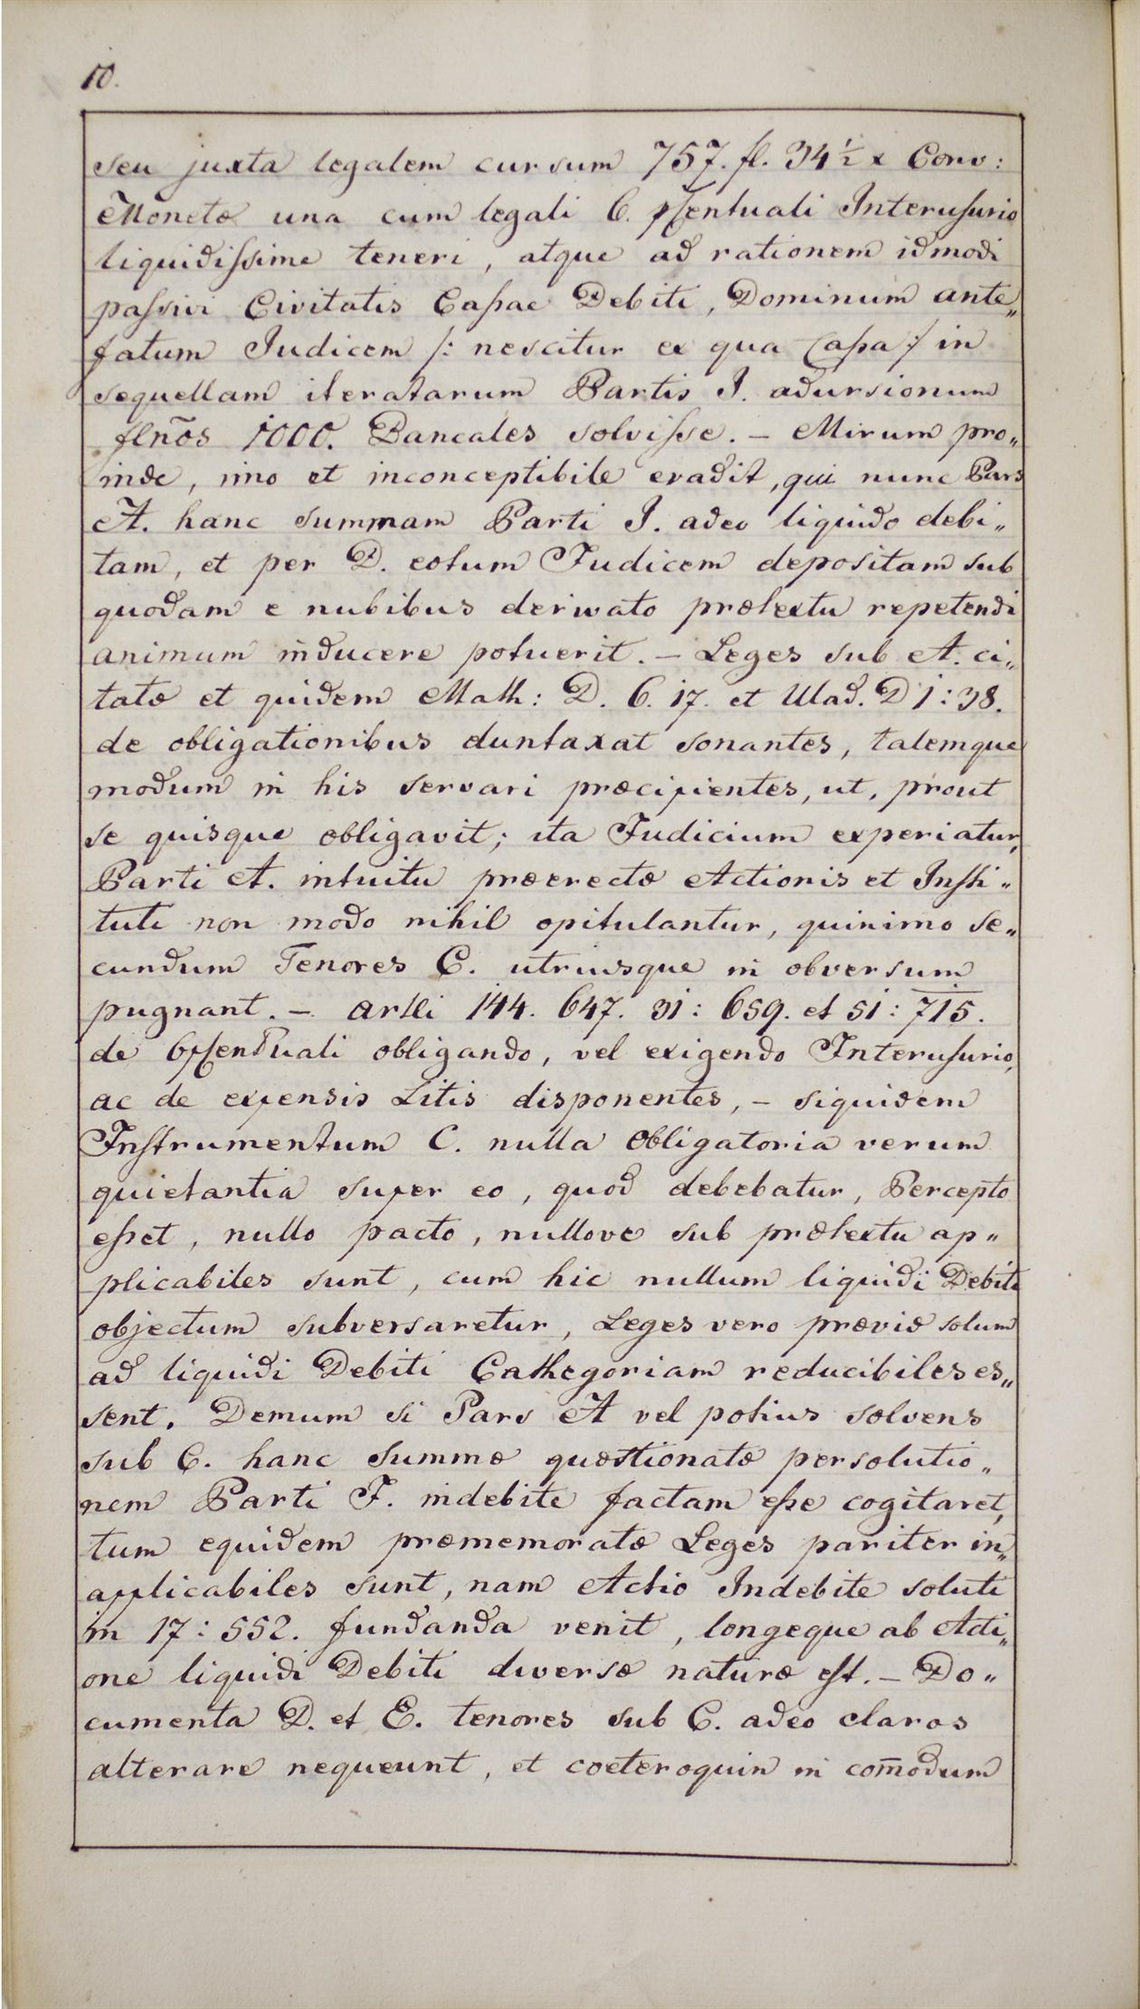 10.
seu juxta legalem cursum 757. fl. 34½ x Conv:
Monetæ una cum legali 6. pCentuali Interusurio
liquidissime teneri, atque ad rationem idmodi
passivi Civitatis Cassae Debiti, Dominum ante„
fatum Judicem /: nescitur ex qua Cassa :/ in
sequellam iteratarum Partis I. adursionum
flen̄os 1000. Bancales solvisse. – Mirum pro„
inde, imo et inconceptibile evadit, qui nunc Pars
A. hanc summam Parti I. adeo liquido debi„
tam, et per D. eotum Judicem depositam sub
quodam e nubibus derivato prætextu repetendi
animum inducere potuerit. – Leges sub A. ci„
tatæ et quidem Math: D. 6. 17. et Ulad. D 1: 38.
de obligationibus duntaxat sonantes, talemque
modum in his servari præcipientes, ut, prout
se quisque obligavit; ita Judicium experiatur,
Parti A. intuitu præerectæ Actionis et Insti„
tuti non modo nihil opitulantur, quinimo se„
cundum Tenores C. utriusque in obversum
pugnant. – Artli 144. 647. 31: 659. et 51: 715.
de 6pCentuali obligando, vel exigendo Interusurio,
ac de expensis Litis disponentes, – siquidem
Instrumentum C. nulla Obligatoria verum
quietantia super eo, quod debebatur, Percepto
esset, nullo pacto, nullove sub prætextu ap„
plicabiles sunt, cum hic nullum liquidi Debiti
objectum subversaretur, Leges vero præviæ solum
ad liquidi Debiti Cathegoriam reducibiles es„
sent. Demum si Pars A vel potius solvens
sub C. hanc summæ quæstionatæ persolutio„
nem Parti I. indebite factam esse cogitaret,
tum equidem præmemoratæ Leges pariter in„
applicabiles sunt, nam Actio Indebite soluti
in 17: 552. fundanda venit, longeque ab Acti„
one liquidi Debiti diversæ naturæ est. – Do„
cumenta D. et E. tenores sub C. adeo claros
alterare nequeunt, et coeteroquin in com̄odum